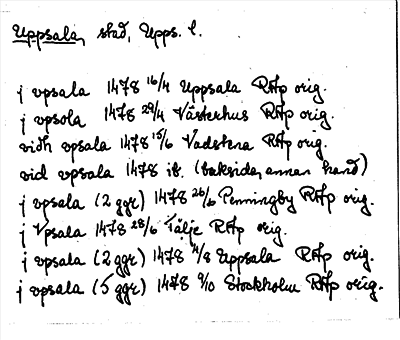 Uppsala, stad, Upps. l.
j vpsala 1478 16/4 Uppsala RAp orig.
j vpsola 1478 29/4 Västerhus RAp orig.
vidh vpsala 1478 15/6 Vadstena RAp orig.
vid vpsala 1478 ib. (baksida, annan hand)
j vpsala (2 ggr) 1478 26/6 Penningby RAp orig.
j Vpsala 1478 28/6 Tälje RAp orig.
j vpsala (2 ggr) 1478 /8 Uppsala RAp orig.
j vpsala (5 ggr) 1478 9/10 Stockholm RAp orig.